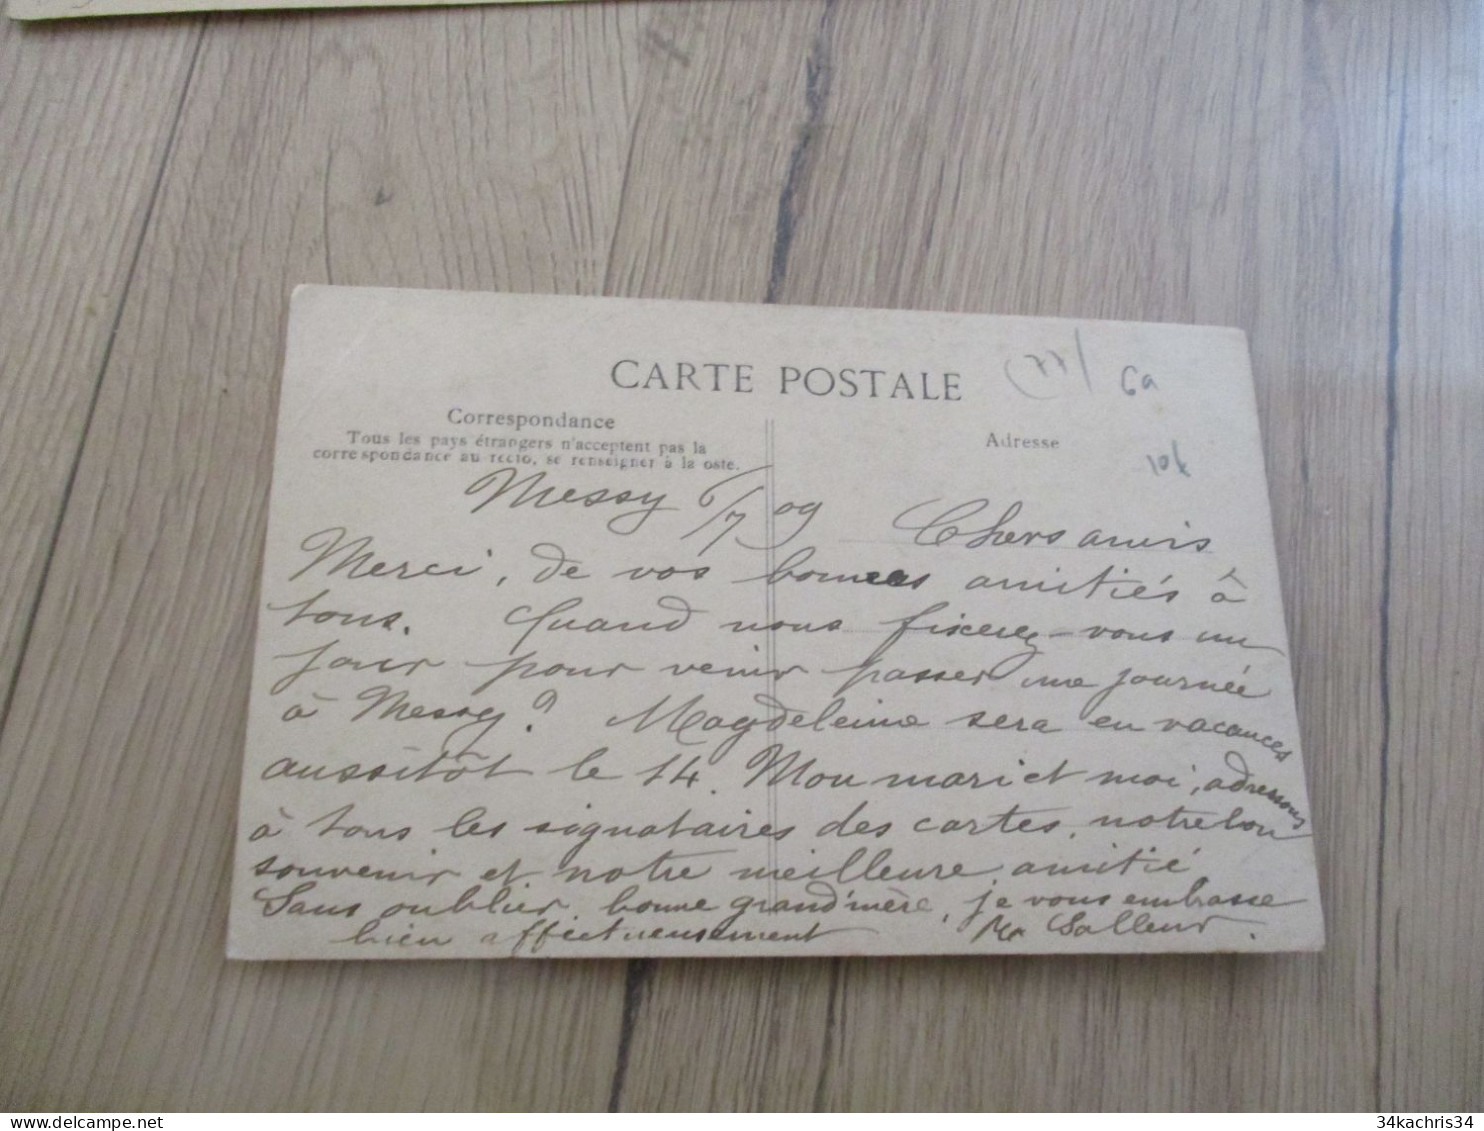 CARTE POSTALE
(77)
6a
10t
Correspondance
Tous les pays étrangers n'acceptent pas la
correspondance au recto, se renseigner à la oste.
Adresse
Messy 6/7 09
Chers amis
Merci, de vos bonnes amitiés à
tous. Quand nous fixerez-vous un
jour pour venir passer une journée
à Messy? Magdeleine sera en vacances
aussitôt le 14. Mon mari et moi, adressons
à tous les signataires des cartes, notre bon
souvenir et notre meilleure amitié
Sans oublier bonne grand'mère, je vous embrasse
bien affectueusement
34kachris34